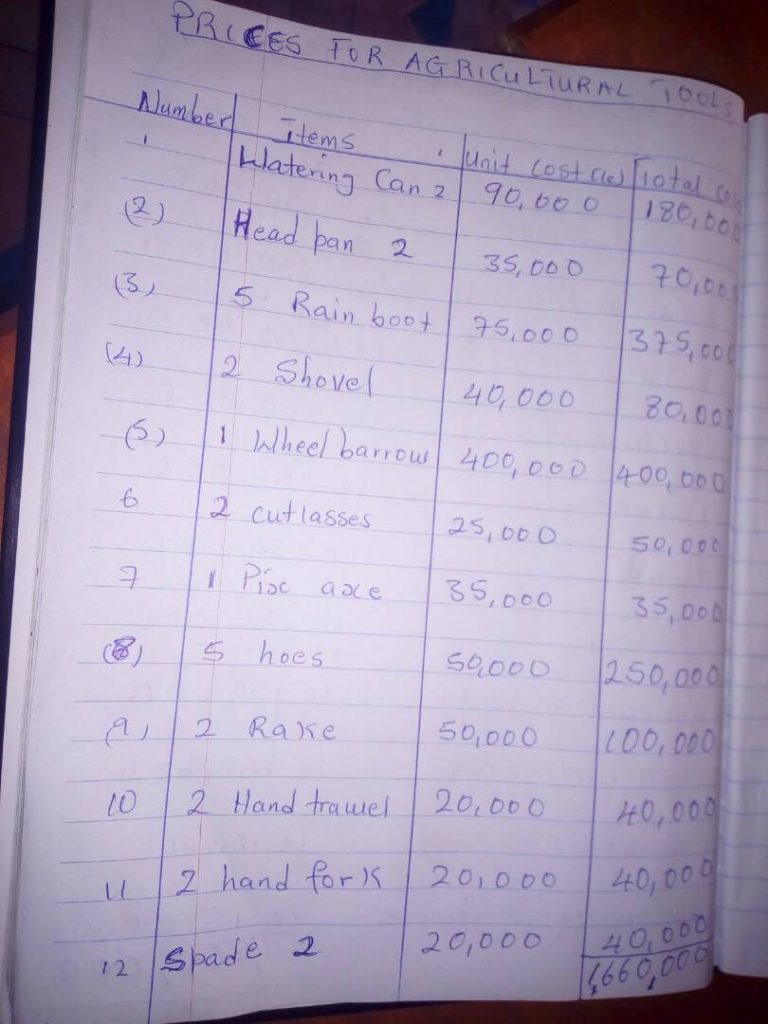 PRICES FOR AGRICULTURAL TOOLS
Number Items Unit Cost (le) Total Cos
1 Watering Can 2 90,000 180,000
(2) Head pan 2 35,000 70,00
(3) 5 Rain boot 75,000 375,000
(4) 2 Shovel 40,000 80,000
(5) 1 Wheel barrow 400,000 400,000
6 2 cutlasses 25,000 50,000
7 1 Pix axe 35,000 35,000
(8) 5 hoes 50,000 250,000
9) 2 Rake 50,000 100,000
10 2 Hand trawel 20,000 40,000
11 2 hand fork 20,000 40,000
12 Spade 2 20,000 40,000
1,660,000